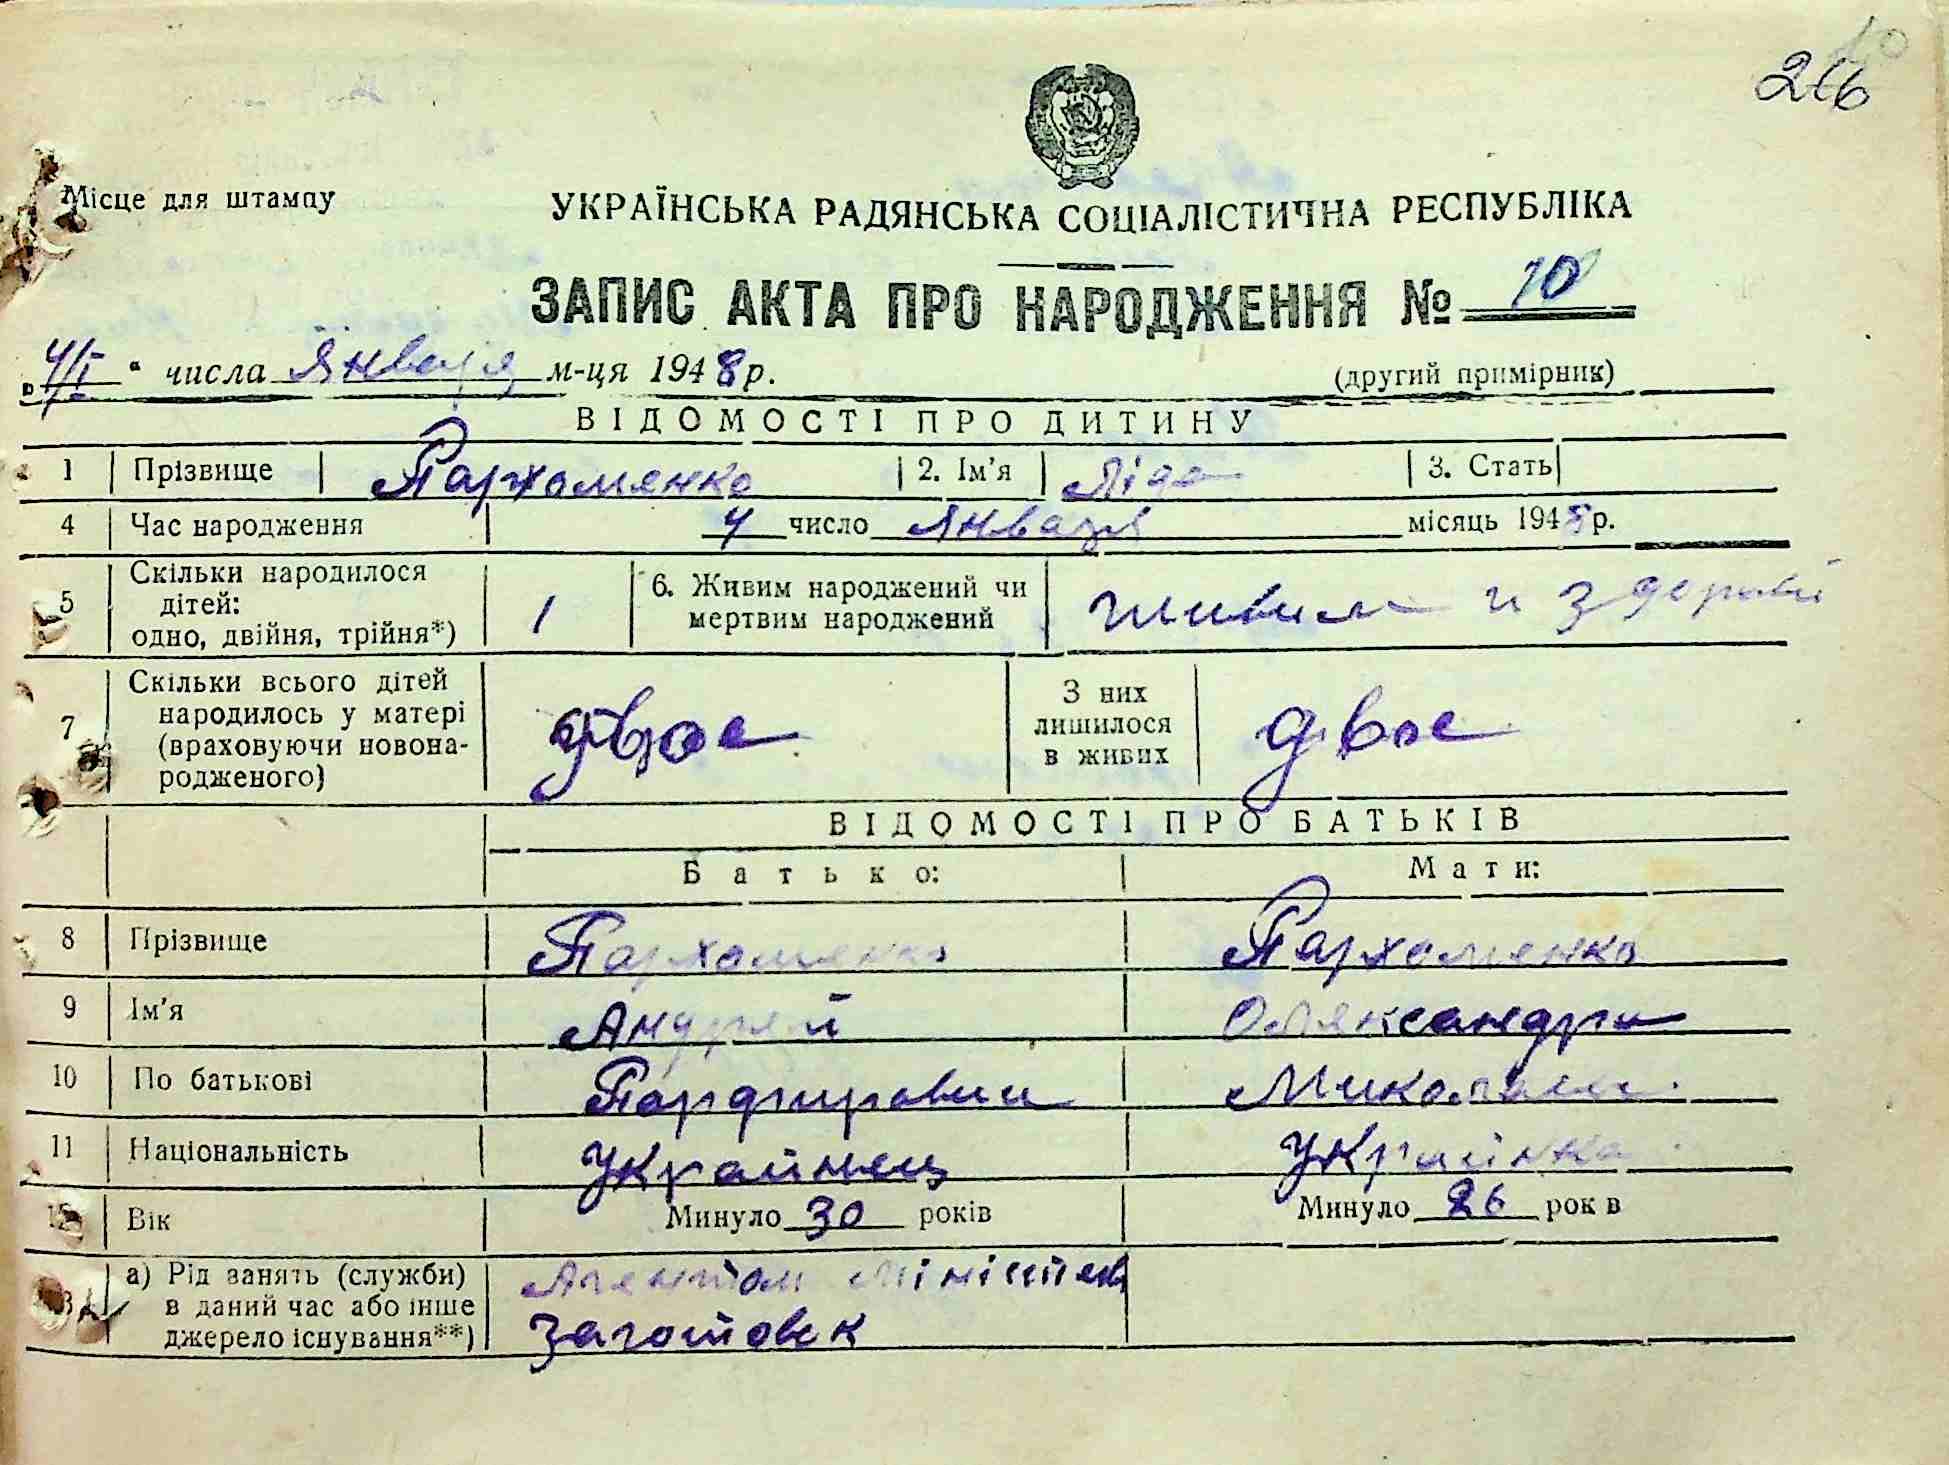 Місце для штампу
УКРАЇНСЬКА РАДЯНСЬКА СОЦІАЛІСТИЧНА РЕСПУБЛІКА
ЗАПИС АКТА ПРО НАРОДЖЕННЯ № 10
„4/I“ числа Января м-ця 1948 р.
(другий примірник)
ВІДОМОСТІ ПРО ДИТИНУ
1 Прізвище Пархоменко 2. Ім'я Ліда 3. Стать
4 Час народження 4 число Января місяць 1948 р.
5 Скільки народилося дітей: одно, двійня, трійня*) 1 6. Живим народжений чи мертвим народжений живим и здоровй
7 Скільки всього дітей народилось у матері (враховуючи новонародженого) двое З них лишилося в живих двое
ВІДОМОСТІ ПРО БАТЬКІВ
Батько: Мати:
8 Прізвище Пархоменко Пархоменко
9 Ім'я Андрей Олександра
10 По батькові Парфирович
11 Національність Украйнец Украйнка
12 Вік Минуло 30 років Минуло 26 років
13 а) Рід занять (служби) в даний час або інше джерело існування**) Агентом Міністер
заготовок